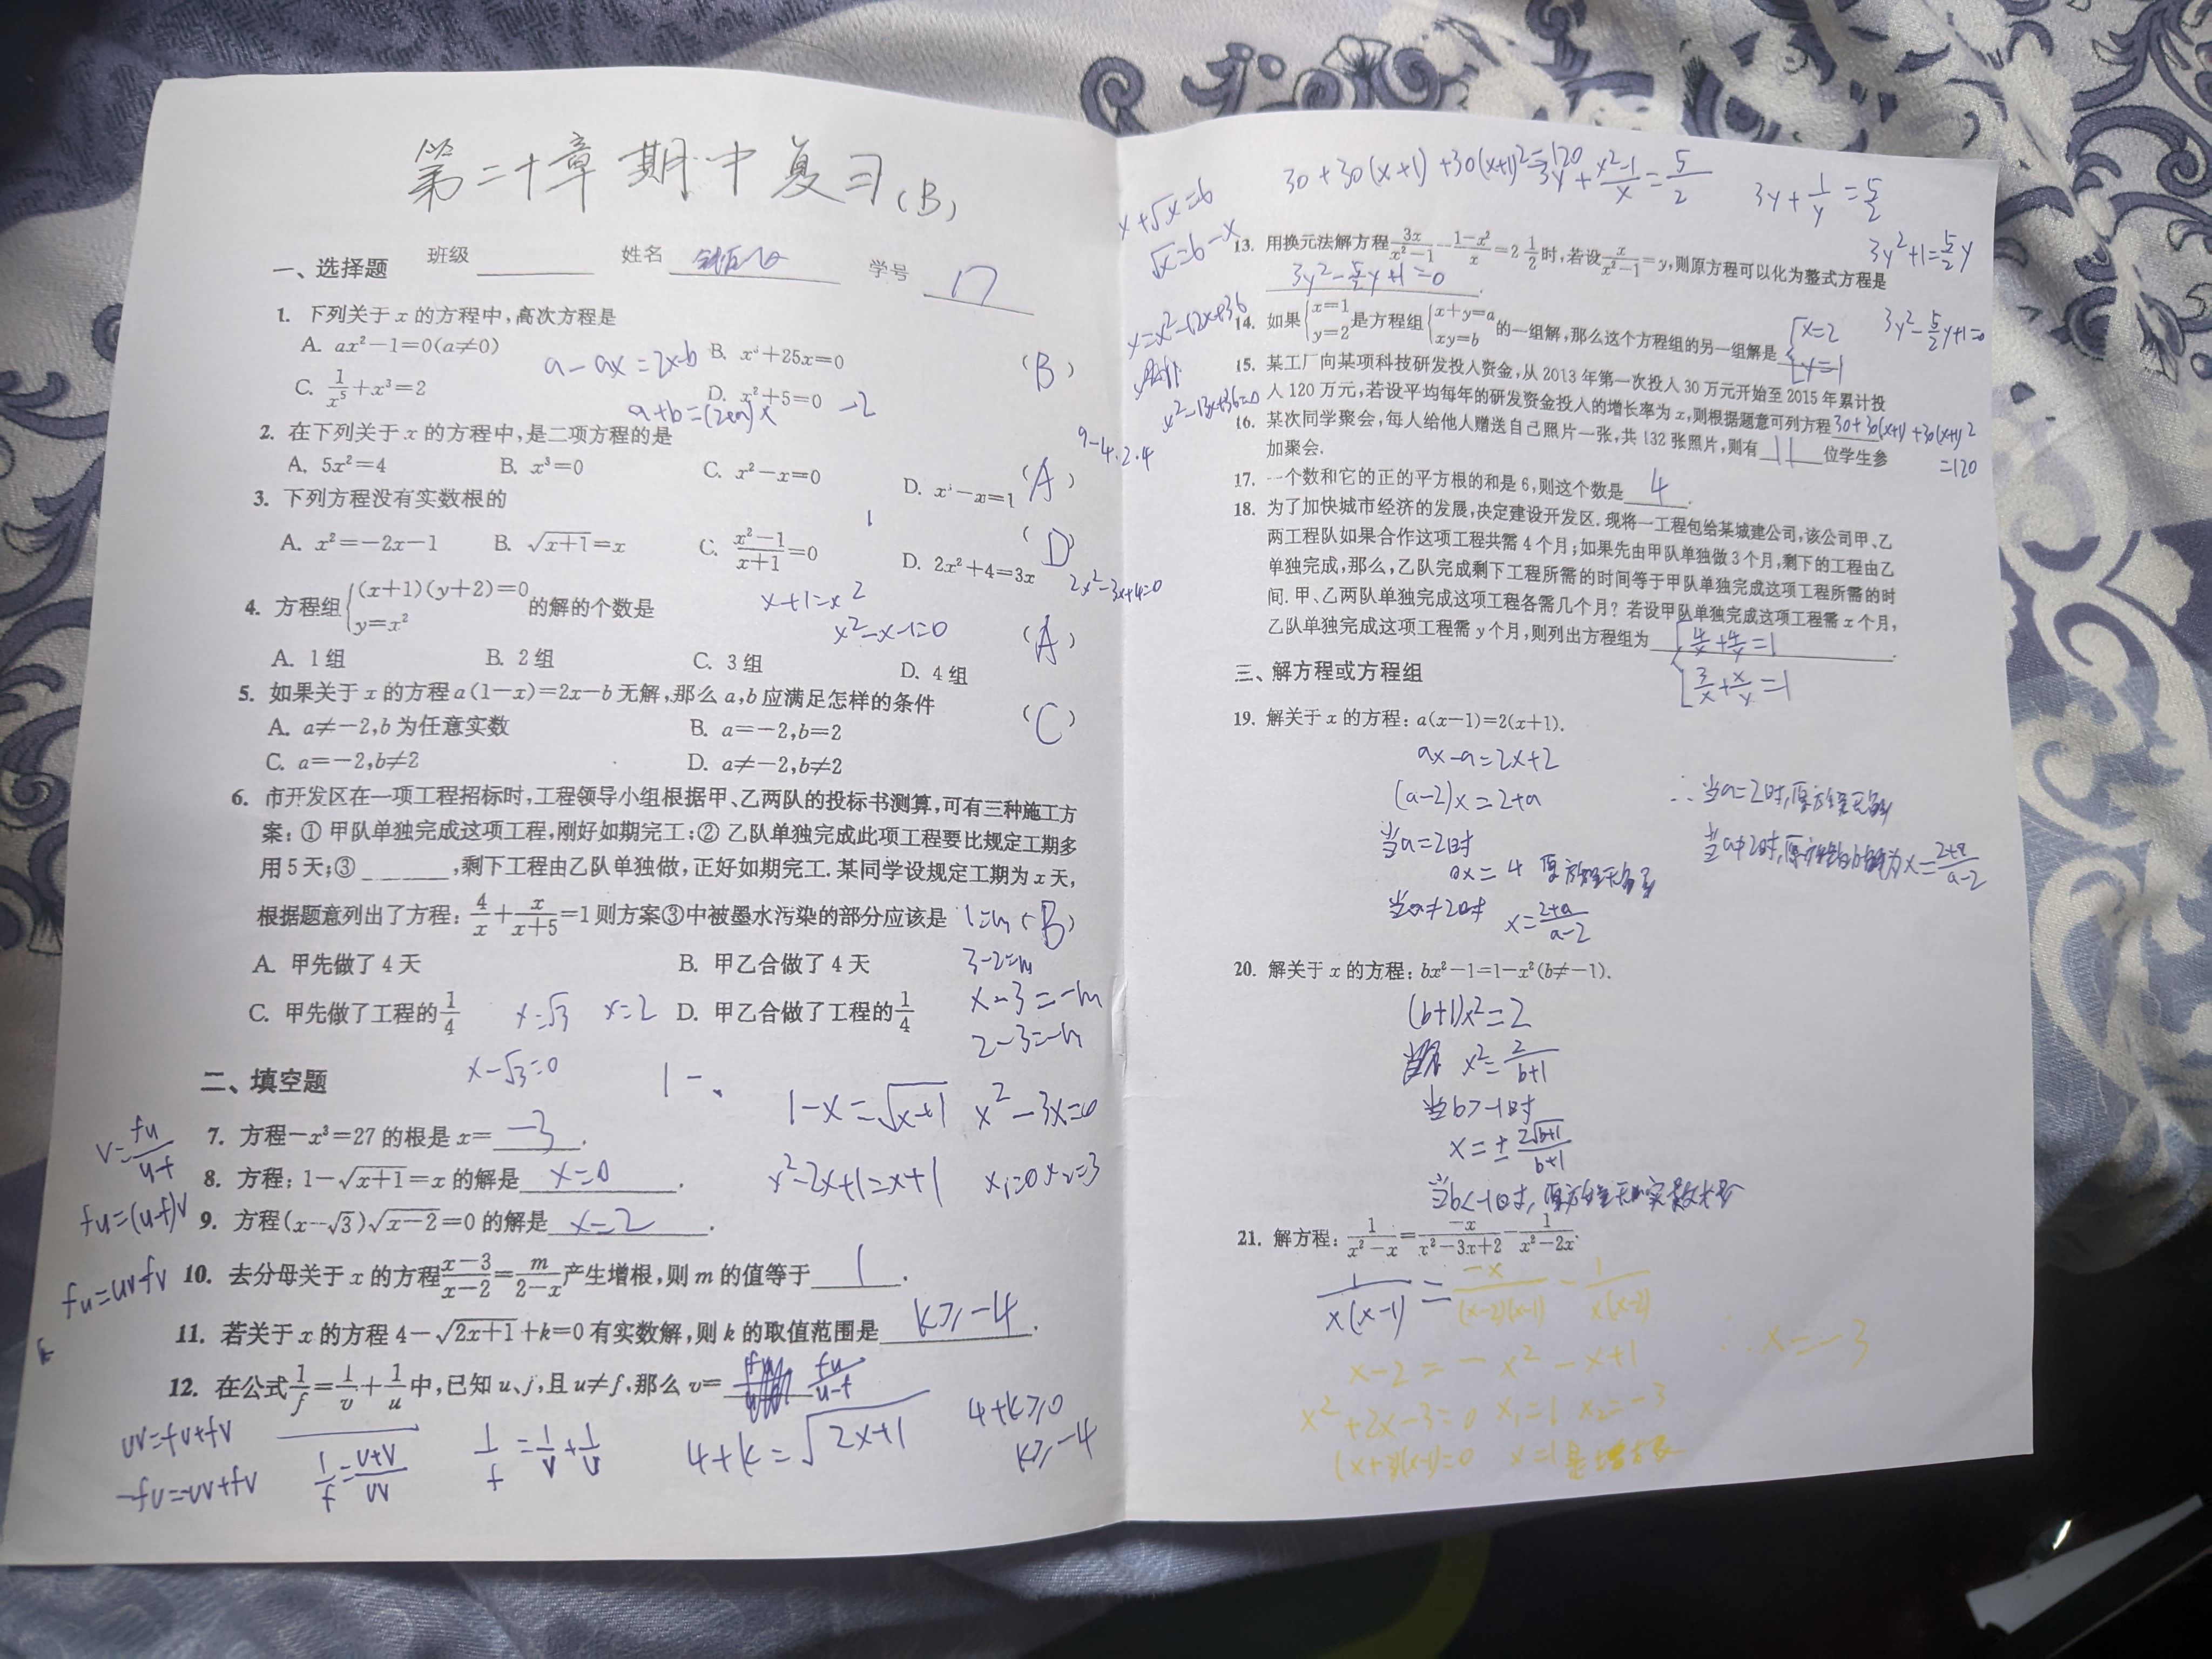 第二十章期中复习(B)
班级 姓名 学号 17
一、选择题
1. 下列关于x的方程中,高次方程是
A. ax²-1=0(a≠0) B. x³+25x=0 (B)
a-ax=2x-b
C. 1/x⁵+x³=2 D. x²+5=0
2. 在下列关于x的方程中,是二项方程的是
A. 5x²=4 B. x³=0 C. x²-x=0 D. x³-x=1 (A)
9-4·2·4
3. 下列方程没有实数根的 (D)
A. x²=-2x-1 B. √(x+1)=x C. (x²-1)/(x+1)=0 D. 2x²+4=3x
2x²-3x+4=0
4. 方程组{(x+1)(y+2)=0 y=x²的解的个数是 (A)
x+1=x²
x²-x-1=0
A. 1组 B. 2组 C. 3组 D. 4组
5. 如果关于x的方程a(1-x)=2x-b无解,那么a,b应满足怎样的条件 (C)
A. a≠-2,b为任意实数 B. a=-2,b=2
C. a=-2,b≠2 D. a≠-2,b≠2
6. 市开发区在一项工程招标时,工程领导小组根据甲、乙两队的投标书测算,可有三种施工方
案:① 甲队单独完成这项工程,刚好如期完工;② 乙队单独完成此项工程要比规定工期多
用5天;③______,剩下工程由乙队单独做,正好如期完工.某同学设规定工期为x天,
根据题意列出了方程:4/x+x/(x+5)=1则方案③中被墨水污染的部分应该是 (B)
1=m
3-2=m
x-3=-m
2-3=-m
A. 甲先做了4天 B. 甲乙合做了4天
C. 甲先做了工程的1/4 D. 甲乙合做了工程的1/4
x=√3 x=2
x-√3=0
二、填空题
1-x=√(x+1) x²-3x=0
x²-2x+1=x+1 x₁=0 x₂=3
7. 方程-x³=27的根是x=-3.
8. 方程:1-√(x+1)=x的解是x=0.
9. 方程(x-√3)√(x-2)=0的解是x=2.
10. 去分母关于x的方程(x-3)/(x-2)=m/(2-x)产生增根,则m的值等于1.
11. 若关于x的方程4-√(2x+1)+k=0有实数解,则k的取值范围是k≥-4.
12. 在公式1/f=1/v+1/u中,已知u、f,且u≠f,那么v=fu/(u-f)
v=fu/(u-f)
fu=(u-f)v
fu=uv-fv
uv=fu+fv
-fu=-uv+fv
1/f=(u+v)/uv
1/f=1/v+1/u
4+k=√(2x+1)
4+k≥0
k≥-4
30+30(x+1)+30(x+1)²=120
3y+(x²-1)/x=5/2
3y+1/y=5/2
3y²+1=5/2y
3y²-5/2y+1=0
x+√x=6
√x=6-x
x=x²-12x+36
x²-13x+36=0
13. 用换元法解方程3x/(x²-1)-(1-x²)/x=2 1/2时,若设x/(x²-1)=y,则原方程可以化为整式方程是
3y²-5/2y+1=0.
14. 如果{x=1 y=2是方程组{x+y=a xy=b的一组解,那么这个方程组的另一组解是{x=2 y=1
15. 某工厂向某项科技研发投入资金,从2013年第一次投入30万元开始至2015年累计投
入120万元,若设平均每年的研发资金投入的增长率为x,则根据题意可列方程30+30(x+1)+30(x+1)²=120
16. 某次同学聚会,每人给他人赠送自己照片一张,共132张照片,则有11位学生参
加聚会.
17. 一个数和它的正的平方根的和是6,则这个数是4.
18. 为了加快城市经济的发展,决定建设开发区.现将一工程包给某城建公司,该公司甲、乙
两工程队如果合作这项工程共需4个月;如果先由甲队单独做3个月,剩下的工程由乙
单独完成,那么,乙队完成剩下工程所需的时间等于甲队单独完成这项工程所需的时
间.甲、乙两队单独完成这项工程各需几个月?若设甲队单独完成这项工程需x个月,
乙队单独完成这项工程需y个月,则列出方程组为{4/x+4/y=1
3/x+x/y=1
三、解方程或方程组
19. 解关于x的方程:a(x-1)=2(x+1).
ax-a=2x+2
(a-2)x=2+a
当a=2时
0x=4 原方程无解
当a≠2时 x=(2+a)/(a-2)
∴当a=2时,原方程无解
当a≠2时,原方程的解为x=(2+a)/(a-2)
20. 解关于x的方程:bx²-1=1-x²(b≠-1).
(b+1)x²=2
x²=2/(b+1)
当b>-1时
x=±2√(b+1)/(b+1)
当b<-1时,原方程无实数根
21. 解方程:1/(x²-x)=-x/(x²-3x+2)-1/(x²-2x).
1/x(x-1)=-x/(x-2)(x-1)-1/x(x-2)
x-2=-x²-x+1
x²+2x-3=0 x₁=1 x₂=-3
(x+3)(x-1)=0 x=1是增根
∴x=-3